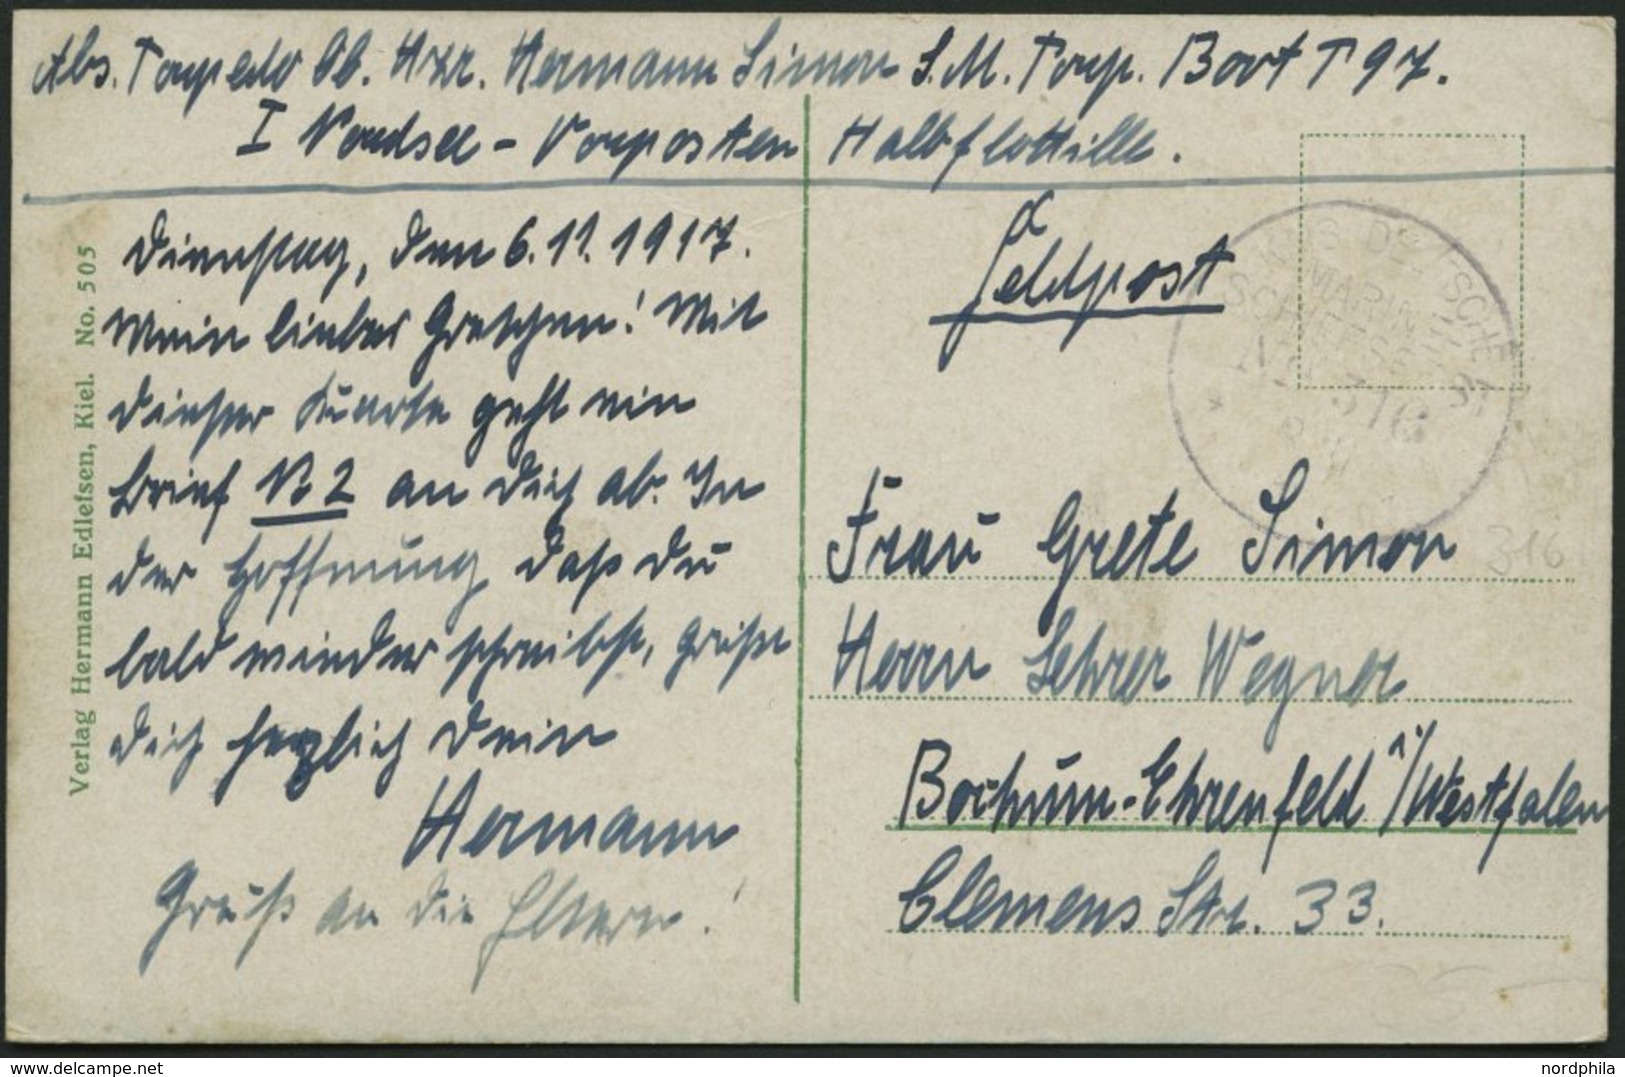 Abs. Torpedo Ob. Hzr. Hermann Simon S.M. Torp. Boot T 97.
I Nordsee-Vorposten Halbflottille.
Dienstag, den 6.11.1917.
Mein liebes Gretchen! Mit
dieser Kaarte geht ein
Brief No 2 an Dich ab. In
der Hoffnung daß du
bald wieder schreibst, grüßt
dich herzlich Dein
Hermann
Gruß an die Eltern!
Verlag Hermann Edlefsen, Kiel. No. 505
Feldpost
DEUTSCHE
MARINE
SCHIFFSPOST
316
Frau Grete Simon
316
Herrn Lehrer Wegner
Bochum-Ehrenfeld i/Westfalen
Clemens Str. 33.
www.ma-shops.com
nordphila